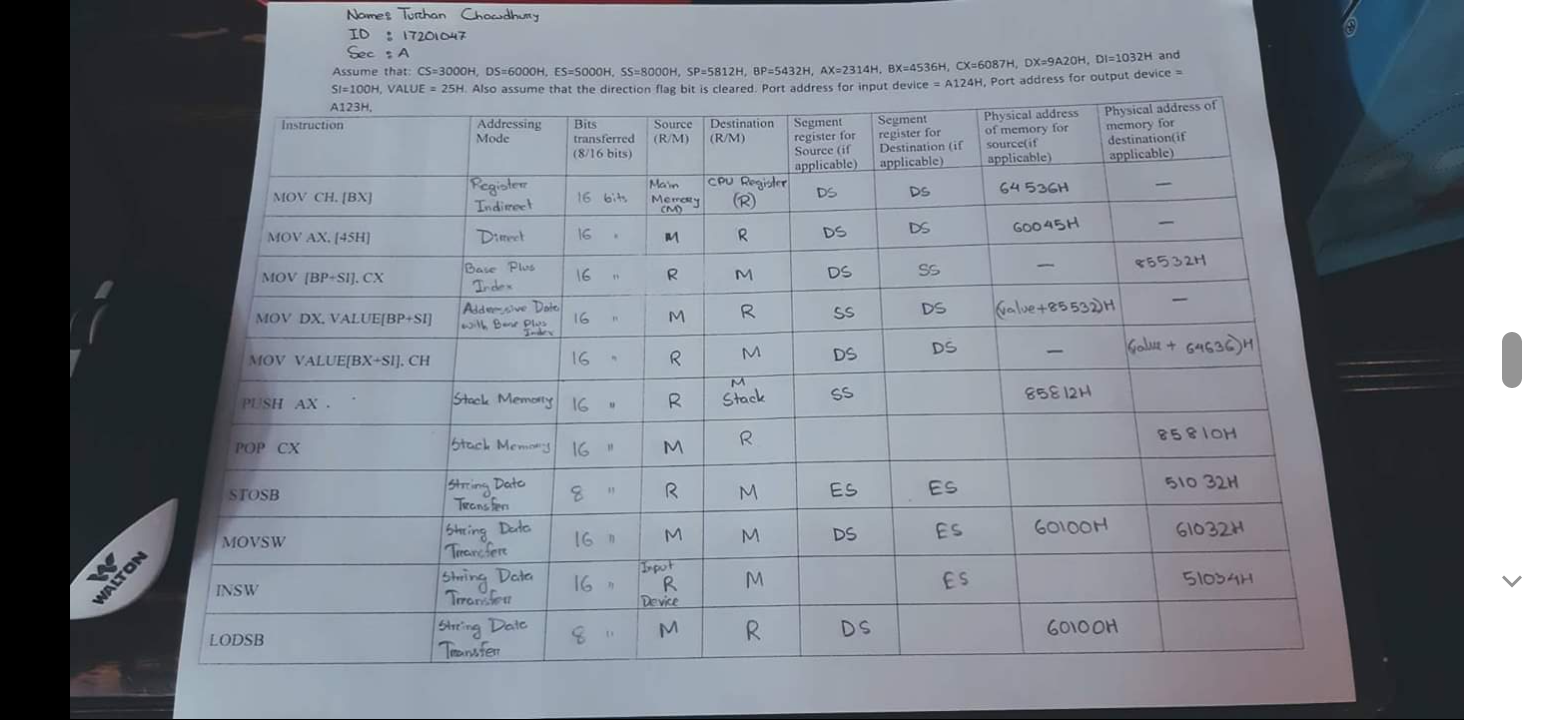 Name: Turhan Chowdhury
ID : 17201047
Sec : A
Assume that: CS=3000H, DS=6000H, ES=5000H, SS=8000H, SP=5812H, BP=5432H, AX=2314H, BX=4536H, CX=6087H, DX=9A20H, DI=1032H and
SI=100H, VALUE = 25H. Also assume that the direction flag bit is cleared. Port address for input device = A124H, Port address for output device =
A123H.
Instruction Addressing Mode Bits transferred (8/16 bits) Source (R/M) Destination (R/M) Segment register for Source (if applicable) Segment register for Destination (if applicable) Physical address of memory for source(if applicable) Physical address of memory for destination(if applicable)
MOV CH, [BX] Register Indirect 16 bits Main Memory (M) CPU Register (R) DS DS 64536H —
MOV AX, [45H] Direct 16 " M R DS DS 60045H —
MOV [BP+SI], CX Base Plus Index 16 " R M DS SS — 85532H
MOV DX, VALUE[BP+SI] Date with Base Plus Index 16 " M R SS DS (Value+85532)H —
MOV VALUE[BX+SI], CH 16 " R M DS DS — (Value + 64636)H
PUSH AX . Stack Memory 16 " R M Stack SS 85812H
POP CX Stack Memory 16 " M R 85810H
STOSB String Data Transfer 8 " R M ES ES 51032H
MOVSW String Data Transfer 16 " M M DS ES 60100H 61032H
INSW String Data Transfer 16 " Input R Device M ES 51034H
LODSB String Data Transfer 8 " M R DS 60100H
WALTON